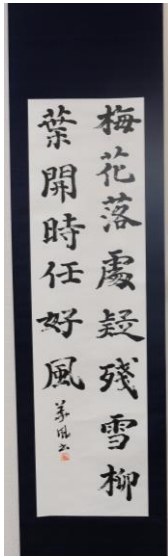 梅花落處疑残雪柳
葉開時任好風